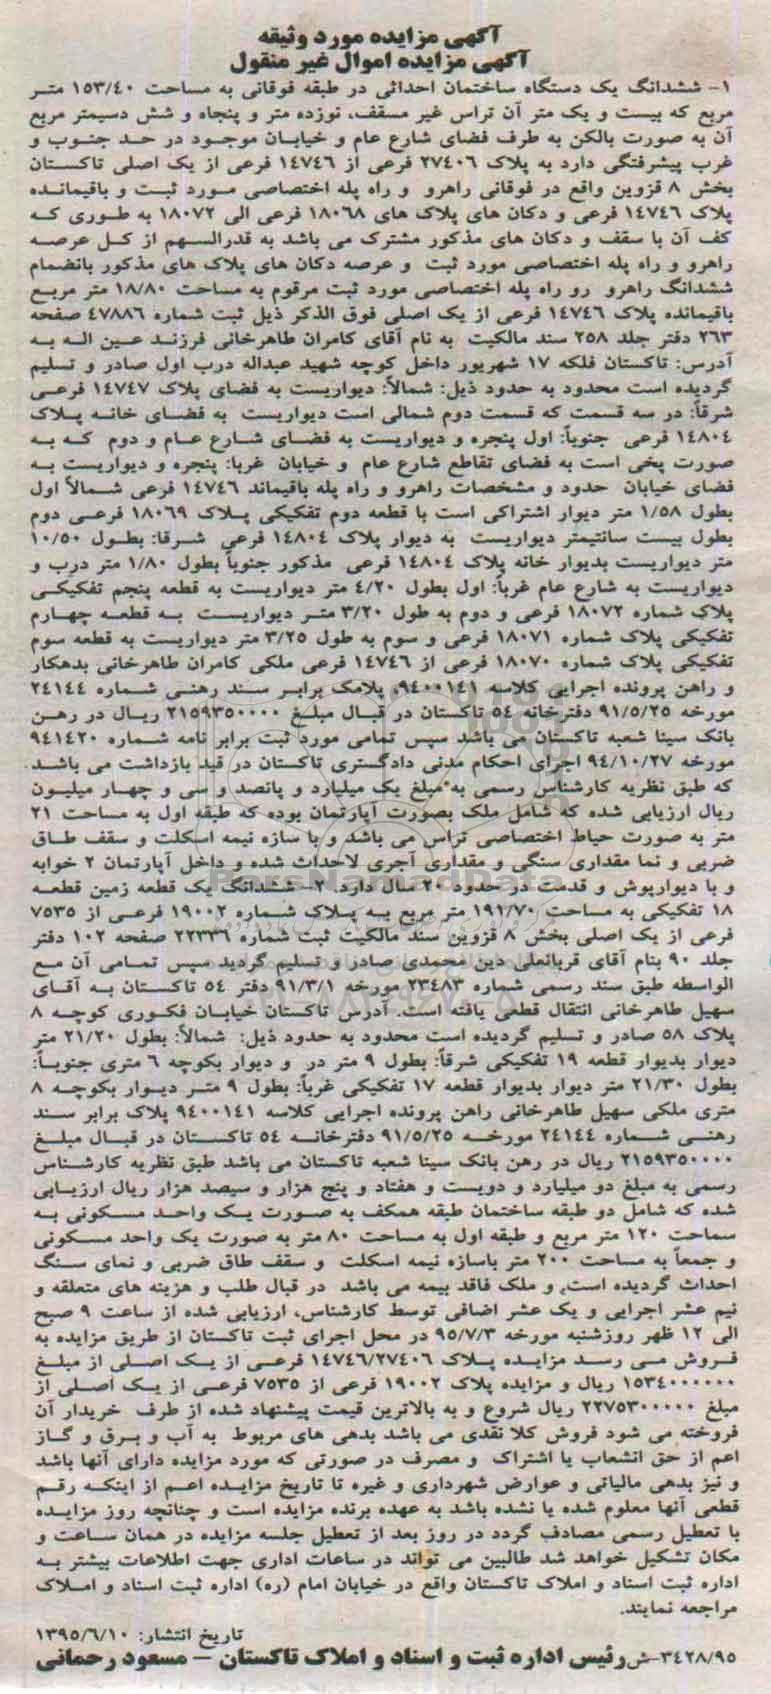 آگهی مزایده مورد وثیقه
آگهی مزایده اموال غیر منقول
۱- ششدانگ یک دستگاه ساختمان احداثی در طبقه فوقانی به مساحت ۱۵۳/۴۰ متر
مربع که بیست و یک متر آن تراس غیر مسقف، نوزده متر و پنجاه و شش دسیمتر مربع
آن به صورت بالکن به طرف فضای شارع عام و خیابان موجود در حد جنوب و
غرب پیشرفتگی دارد به پلاک ۲۷۴۰۶ فرعی از ۱۴۷۴۶ فرعی از یک اصلی تاکستان
بخش ۸ قزوین واقع در فوقانی راهرو و راه پله اختصاصی مورد ثبت و باقیمانده
پلاک ۱۴۷۴۶ فرعی و دکان های پلاک های ۱۸۰۶۸ فرعی الی ۱۸۰۷۲ به طوری که
کف آن با سقف و دکان های مذکور مشترک می باشد به قدرالسهم از کل عرصه
راهرو و راه پله اختصاصی مورد ثبت و عرصه دکان های پلاک های مذکور بانضمام
ششدانگ راهرو رو راه پله اختصاصی مورد ثبت مرقوم به مساحت ۱۸/۸۰ متر مربع
باقیمانده پلاک ۱۴۷۴۶ فرعی از یک اصلی فوق الذکر ذیل ثبت شماره ۴۷۸۸۶ صفحه
۲۶۳ دفتر جلد ۲۵۸ سند مالکیت به نام آقای کامران طاهرخانی فرزند عین اله به
آدرس: تاکستان فلکه ۱۷ شهریور داخل کوچه شهید عبداله درب اول صادر و تسلیم
گردیده است محدود به حدود ذیل: شمالاً: دیواریست به فضای پلاک ۱۴۷۴۷ فرعی
شرقاً: در سه قسمت که قسمت دوم شمالی است دیواریست به فضای خانه پلاک
۱۴۸۰۴ فرعی جنوباً: اول پنجره و دیواریست به فضای شارع عام و دوم که به
صورت پخی است به فضای تقاطع شارع عام و خیابان غربا: پنجره و دیواریست به
فضای خیابان حدود و مشخصات راهرو و راه پله باقیماند ۱۴۷۴۶ فرعی شمالاً اول
بطول ۱/۵۸ متر دیوار اشتراکی است با قطعه دوم تفکیکی پلاک ۱۸۰۶۹ فرعی دوم
بطول بیست سانتیمتر دیواریست به دیوار پلاک ۱۴۸۰۴ فرعی شرقا: بطول ۱۰/۵۰
متر دیواریست بدیوار خانه پلاک ۱۴۸۰۴ فرعی مذکور جنوباً بطول ۱/۸۰ متر درب و
دیواریست به شارع عام غرباً: اول بطول ۴/۲۰ متر دیواریست به قطعه پنجم تفکیکی
پلاک شماره ۱۸۰۷۲ فرعی و دوم به طول ۳/۲۰ متر دیواریست به قطعه چهارم
تفکیکی پلاک شماره ۱۸۰۷۱ فرعی و سوم به طول ۳/۲۵ متر دیواریست به قطعه سوم
تفکیکی پلاک شماره ۱۸۰۷۰ فرعی از ۱۴۷۴۶ فرعی ملکی کامران طاهرخانی بدهکار
و راهن پرونده اجرایی کلاسه ۹۴۰۰۱۴۱، پلامک برابر سند رهنی شماره ۲۴۱۴۴
مورخه ۹۱/۵/۲۵ دفترخانه ۵۴ تاکستان در قبال مبلغ ۲۱۵۹۳۵۰۰۰۰ ریال در رهن
بانک سینا شعبه تاکستان می باشد سپس تمامی مورد ثبت برابر نامه شماره ۹۴۱۴۲۰
مورخه ۹۴/۱۰/۲۷ اجرای احکام مدنی دادگستری تاکستان در قید بازداشت می باشد.
که طبق نظریه کارشناس رسمی به مبلغ یک میلیارد و پانصد و سی و چهار میلیون
ریال ارزیابی شده که شامل ملک بصورت آپارتمان بوده که طبقه اول به مساحت ۲۱
متر به صورت حیاط اختصاصی تراس می باشد و با سازه نیمه اسکلت و سقف طاق
ضربی و نما مقداری سنگی و مقداری آجری لاحداث شده و داخل آپارتمان ۲ خوابه
و با دیوارپوش و قدمت در حدود ۲۰ سال دارد ۲- ششدانگ یک قطعه زمین قطعه
۱۸ تفکیکی به مساحت ۱۹۱/۷۰ متر مربع به پلاک شماره ۱۹۰۰۲ فرعی از ۷۵۳۵
فرعی از یک اصلی بخش ۸ قزوین سند مالکیت ثبت شماره ۲۲۳۳۶ صفحه ۱۰۲ دفتر
جلد ۹۰ بنام آقای قربانعلی دین محمدی صادر و تسلیم گردید سپس تمامی آن مع
الواسطه طبق سند رسمی شماره ۲۳۴۸۳ مورخه ۹۱/۳/۱ دفتر ۵۴ تاکستان به آقای
سهیل طاهرخانی انتقال قطعی یافته است. آدرس تاکستان خیابان فکوری کوچه ۸
پلاک ۵۸ صادر و تسلیم گردیده است محدود به حدود ذیل: شمالاً: بطول ۲۱/۲۰ متر
دیوار بدیوار قطعه ۱۹ تفکیکی شرقاً: بطول ۹ متر در و دیوار بکوچه ۶ متری جنوباً:
بطول ۲۱/۳۰ متر دیوار بدیوار قطعه ۱۷ تفکیکی غرباً: بطول ۹ متر دیوار بکوچه ۸
متری ملکی سهیل طاهرخانی راهن پرونده اجرایی کلاسه ۹۴۰۰۱۴۱ پلاک برابر سند
رهنی شماره ۲۴۱۴۴ مورخه ۹۱/۵/۲۵ دفترخانه ۵۴ تاکستان در قبال مبلغ
۲۱۵۹۳۵۰۰۰۰ ریال در رهن بانک سینا شعبه تاکستان می باشد طبق نظریه کارشناس
رسمی به مبلغ دو میلیارد و دویست و هفتاد و پنج هزار و سیصد هزار ریال ارزیابی
شده که شامل دو طبقه ساختمان طبقه همکف به صورت یک واحد مسکونی به
سماحت ۱۲۰ متر مربع و طبقه اول به مساحت ۸۰ متر به صورت یک واحد مسکونی
و جمعاً به مساحت ۲۰۰ متر باسازه نیمه اسکلت و سقف طاق ضربی و نمای سنگ
احداث گردیده است, و ملک فاقد بیمه می باشد در قبال طلب و هزینه های متعلقه و
نیم عشر اجرایی و یک عشر اضافی توسط کارشناس، ارزیابی شده از ساعت ۹ صبح
الی ۱۲ ظهر روزشنبه مورخه ۹۵/۷/۳ در محل اجرای ثبت تاکستان از طریق مزایده به
فروش می رسد مزایده پلاک ۱۴۷۴۶/۲۷۴۰۶ فرعی از یک اصلی از مبلغ
۱۵۳۴۰۰۰۰۰۰ ریال و مزایده پلاک ۱۹۰۰۲ فرعی از ۷۵۳۵ فرعی از یک اصلی از
مبلغ ۲۲۷۵۳۰۰۰۰۰ ریال شروع و به بالاترین قیمت پیشنهاد شده از طرف خریدار آن
فروخته می شود فروش کلا نقدی می باشد بدهی های مربوط به آب و برق و گاز
اعم از حق انشعاب یا اشتراک و مصرف در صورتی که مورد مزایده دارای آنها باشد
و نیز بدهی مالیاتی و عوارض شهرداری و غیره تا تاریخ مزایده اعم از اینکه رقم
قطعی آنها معلوم شده یا نشده باشد به عهده برنده مزایده است و چنانچه روز مزایده
با تعطیل رسمی مصادف گردد در روز بعد از تعطیل جلسه مزایده در همان ساعت و
مکان تشکیل خواهد شد طالبین می تواند در ساعات اداری جهت اطلاعات بیشتر به
اداره ثبت اسناد و املاک تاکستان واقع در خیابان امام (ره) اداره ثبت اسناد و املاک
مراجعه نمایند.
تاریخ انتشار: ۱۳۹۵/۶/۱۰
۳۴۲۸/۹۵-ش رئیس اداره ثبت و اسناد و املاک تاکستان – مسعود رحمانی
ParsNamadData